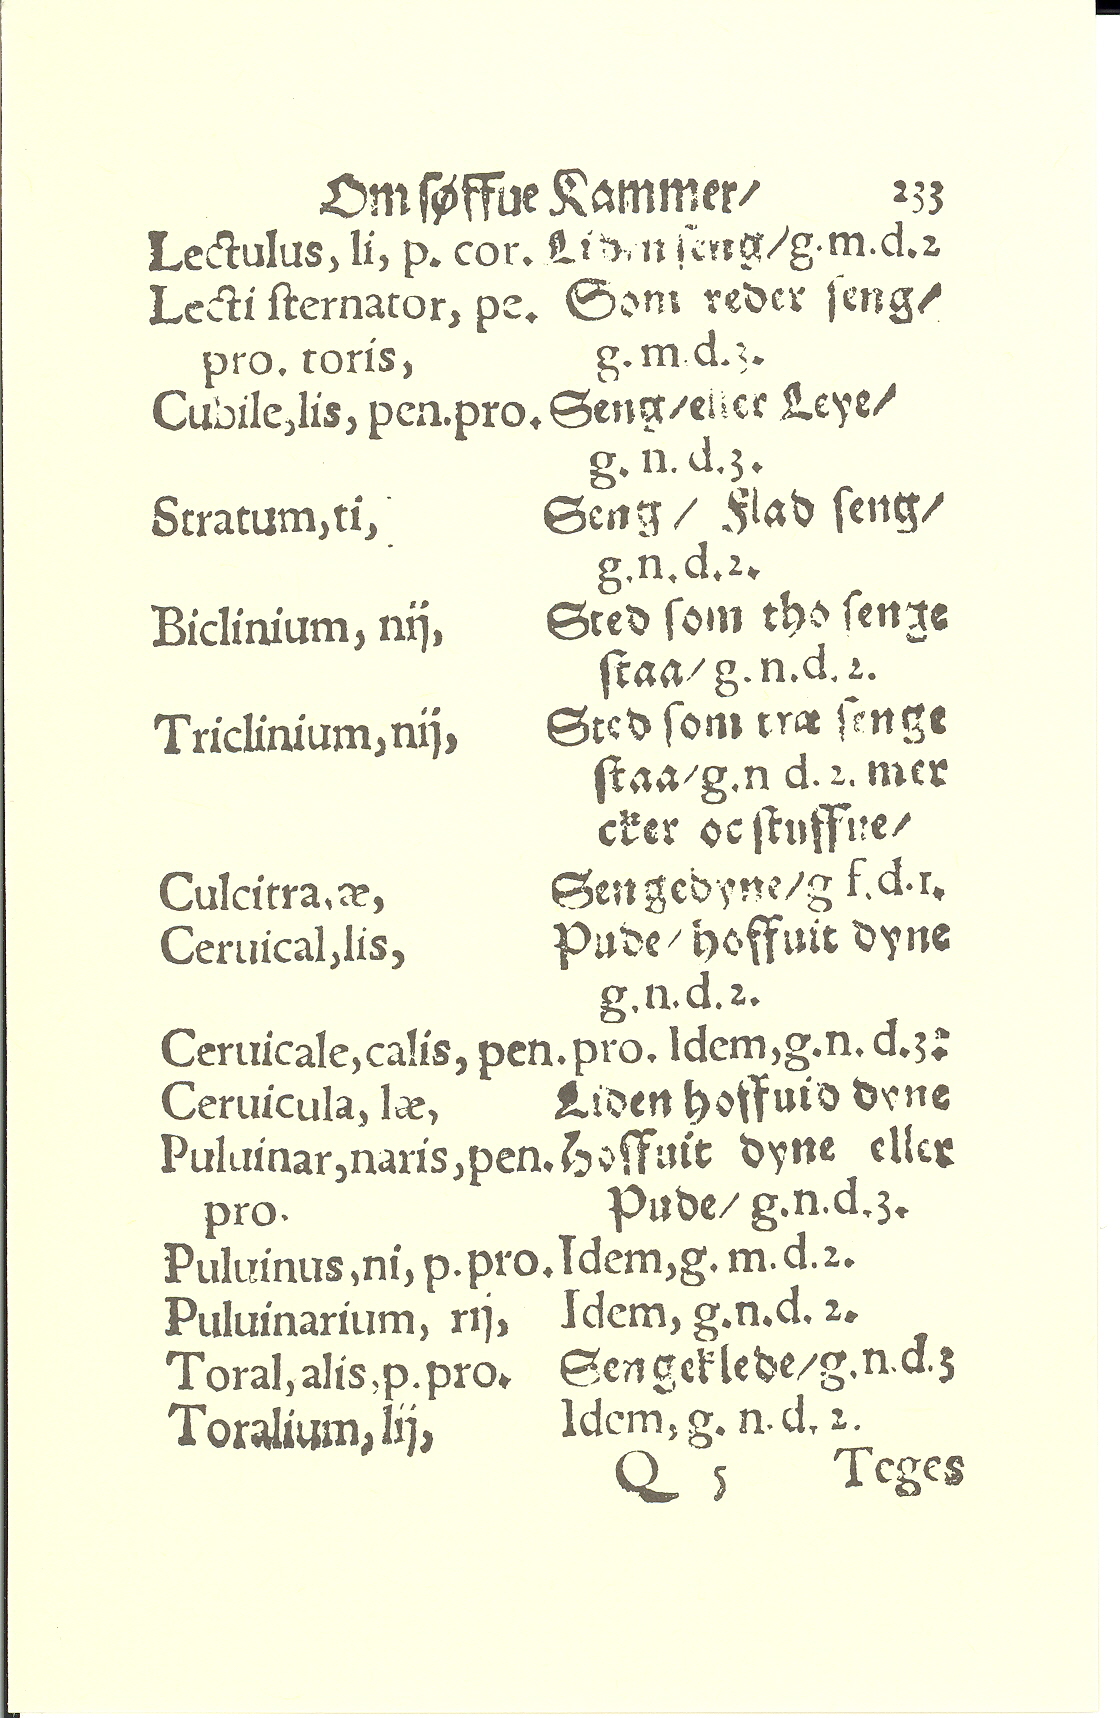 Om søffue Kammer/ 233
Lectulus, li, p. cor. Liden seng/g.m.d.2
Lecti sternator, pe. Som reder seng/
pro. toris, g.m.d.3.
Cubile,lis, pen.pro. Seng/eller Leye/
g. n. d.3.
Stratum,ti, Seng/ Flad seng/
g.n.d.2.
Biclinium, nij, Sted som tho senge
staa/g.n.d.2.
Triclinium,nij, Sted som træ senge
staa/g.n d.2. mer
cker oc stuffue/
Culcitra,æ, Sengedyne/g f.d.1.
Ceruical,lis, Pude/hoffuit dyne
g.n.d.2.
Ceruicale,calis, pen.pro. Idem,g.n.d.3:
Ceruicula, læ, Liden hoffuid dyne
Puluinar,naris,pen. Hoffuit dyne eller
pro. Pude/g.n.d.3.
Puluinus,ni, p.pro. Idem,g.m.d.2.
Puluinarium, rij, Idem, g.n.d.2.
Toral,alis,p.pro. Sengeklede/g.n.d.3
Toralium, lij, Idem, g. n.d. 2.
Q 5 Teges